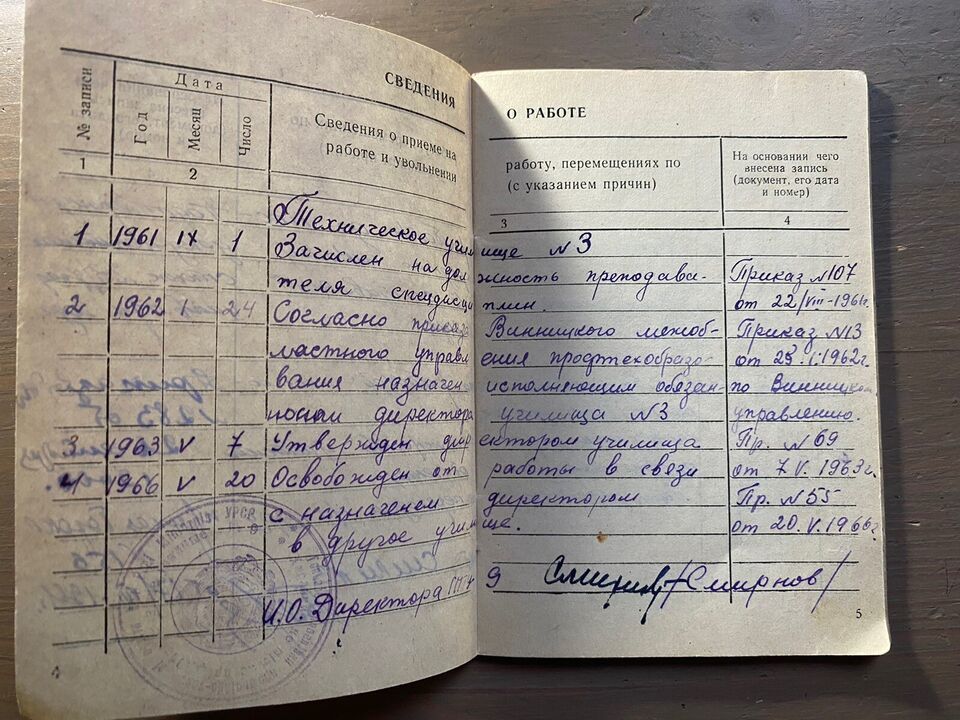 СВЕДЕНИЯ О РАБОТЕ
№ записи
Дата
Год
Месяц
Число
Сведения о приеме на работу, перемещениях по
работе и увольнении (с указанием причин)
На основании чего
внесена запись
(документ, его дата
и номер)
1
2
3
4
Техническое училище №3
1 1961 IX 1 Зачислен на должность преподава- Приказ №107
теля спецдисциплин. от 22/VIII-1961г.
2 1962 I 24 Согласно приказа Винницкого межоб- Приказ №13
ластного управления профтехобразо- от 23.I.1962г.
вания назначен исполняющим обязан- по Винницком
ности директора училища №3 управлению.
3 1963 V 7 Утвержден директором училища Пр. №69
4 1966 V 20 Освобожден от работы в связи от 7 V. 1963г.
с назначенем директором Пр. №55
в другое училище. от 20.V.1966г
И.О. Директора 9 /Смирнов/
4
5